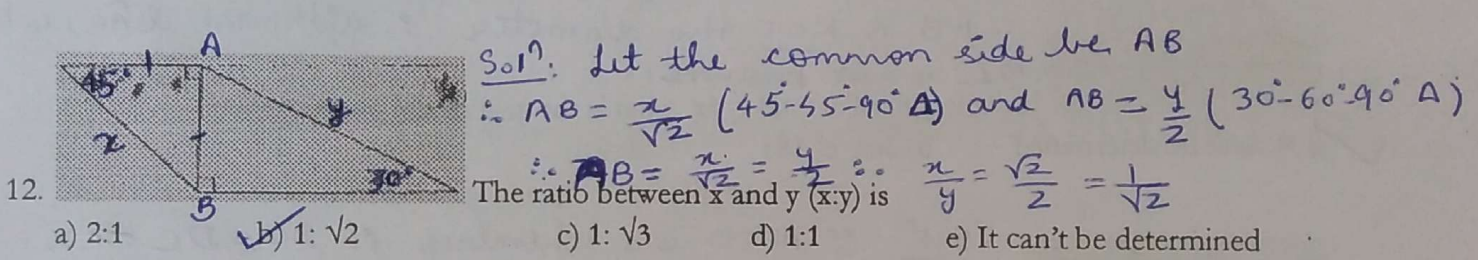 A
45°
x
y
30°
B
Solⁿ: Let the common side be AB
∴ AB = x/√2 (45°-45°-90° Δ) and AB = y/2 (30°-60°-90° Δ)
∴ AB = x/√2 = y/2 ∴ x/y = √2/2 = 1/√2
12. The ratio between x and y (x:y) is
a) 2:1 b) 1: √2 c) 1: √3 d) 1:1 e) It can't be determined